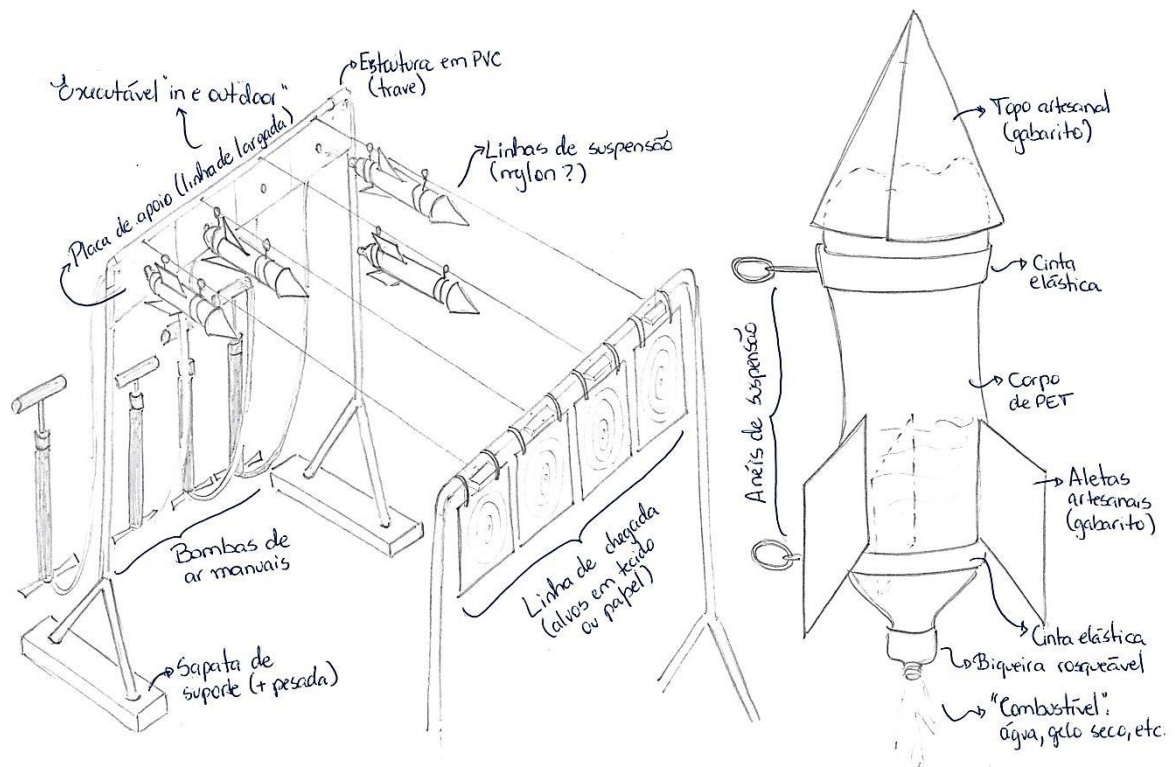 "Executável "in e outdoor"
Estrutura em PVC
(trave)
Placa de apoio (linha de largada)
Linhas de suspensão
(nylon ?)
Bombas de
ar manuais
Sapata de
suporte (+ pesada)
Linha de chegada
(alvos em tecido
ou papel)
Topo artesanal
(gabarito)
Cinta
elástica
Anéis de suspensão
Corpo
de PET
Aletas
artesanais
(gabarito)
Cinta elástica
Biqueira rosqueável
"Combustível":
água, gelo seco, etc.